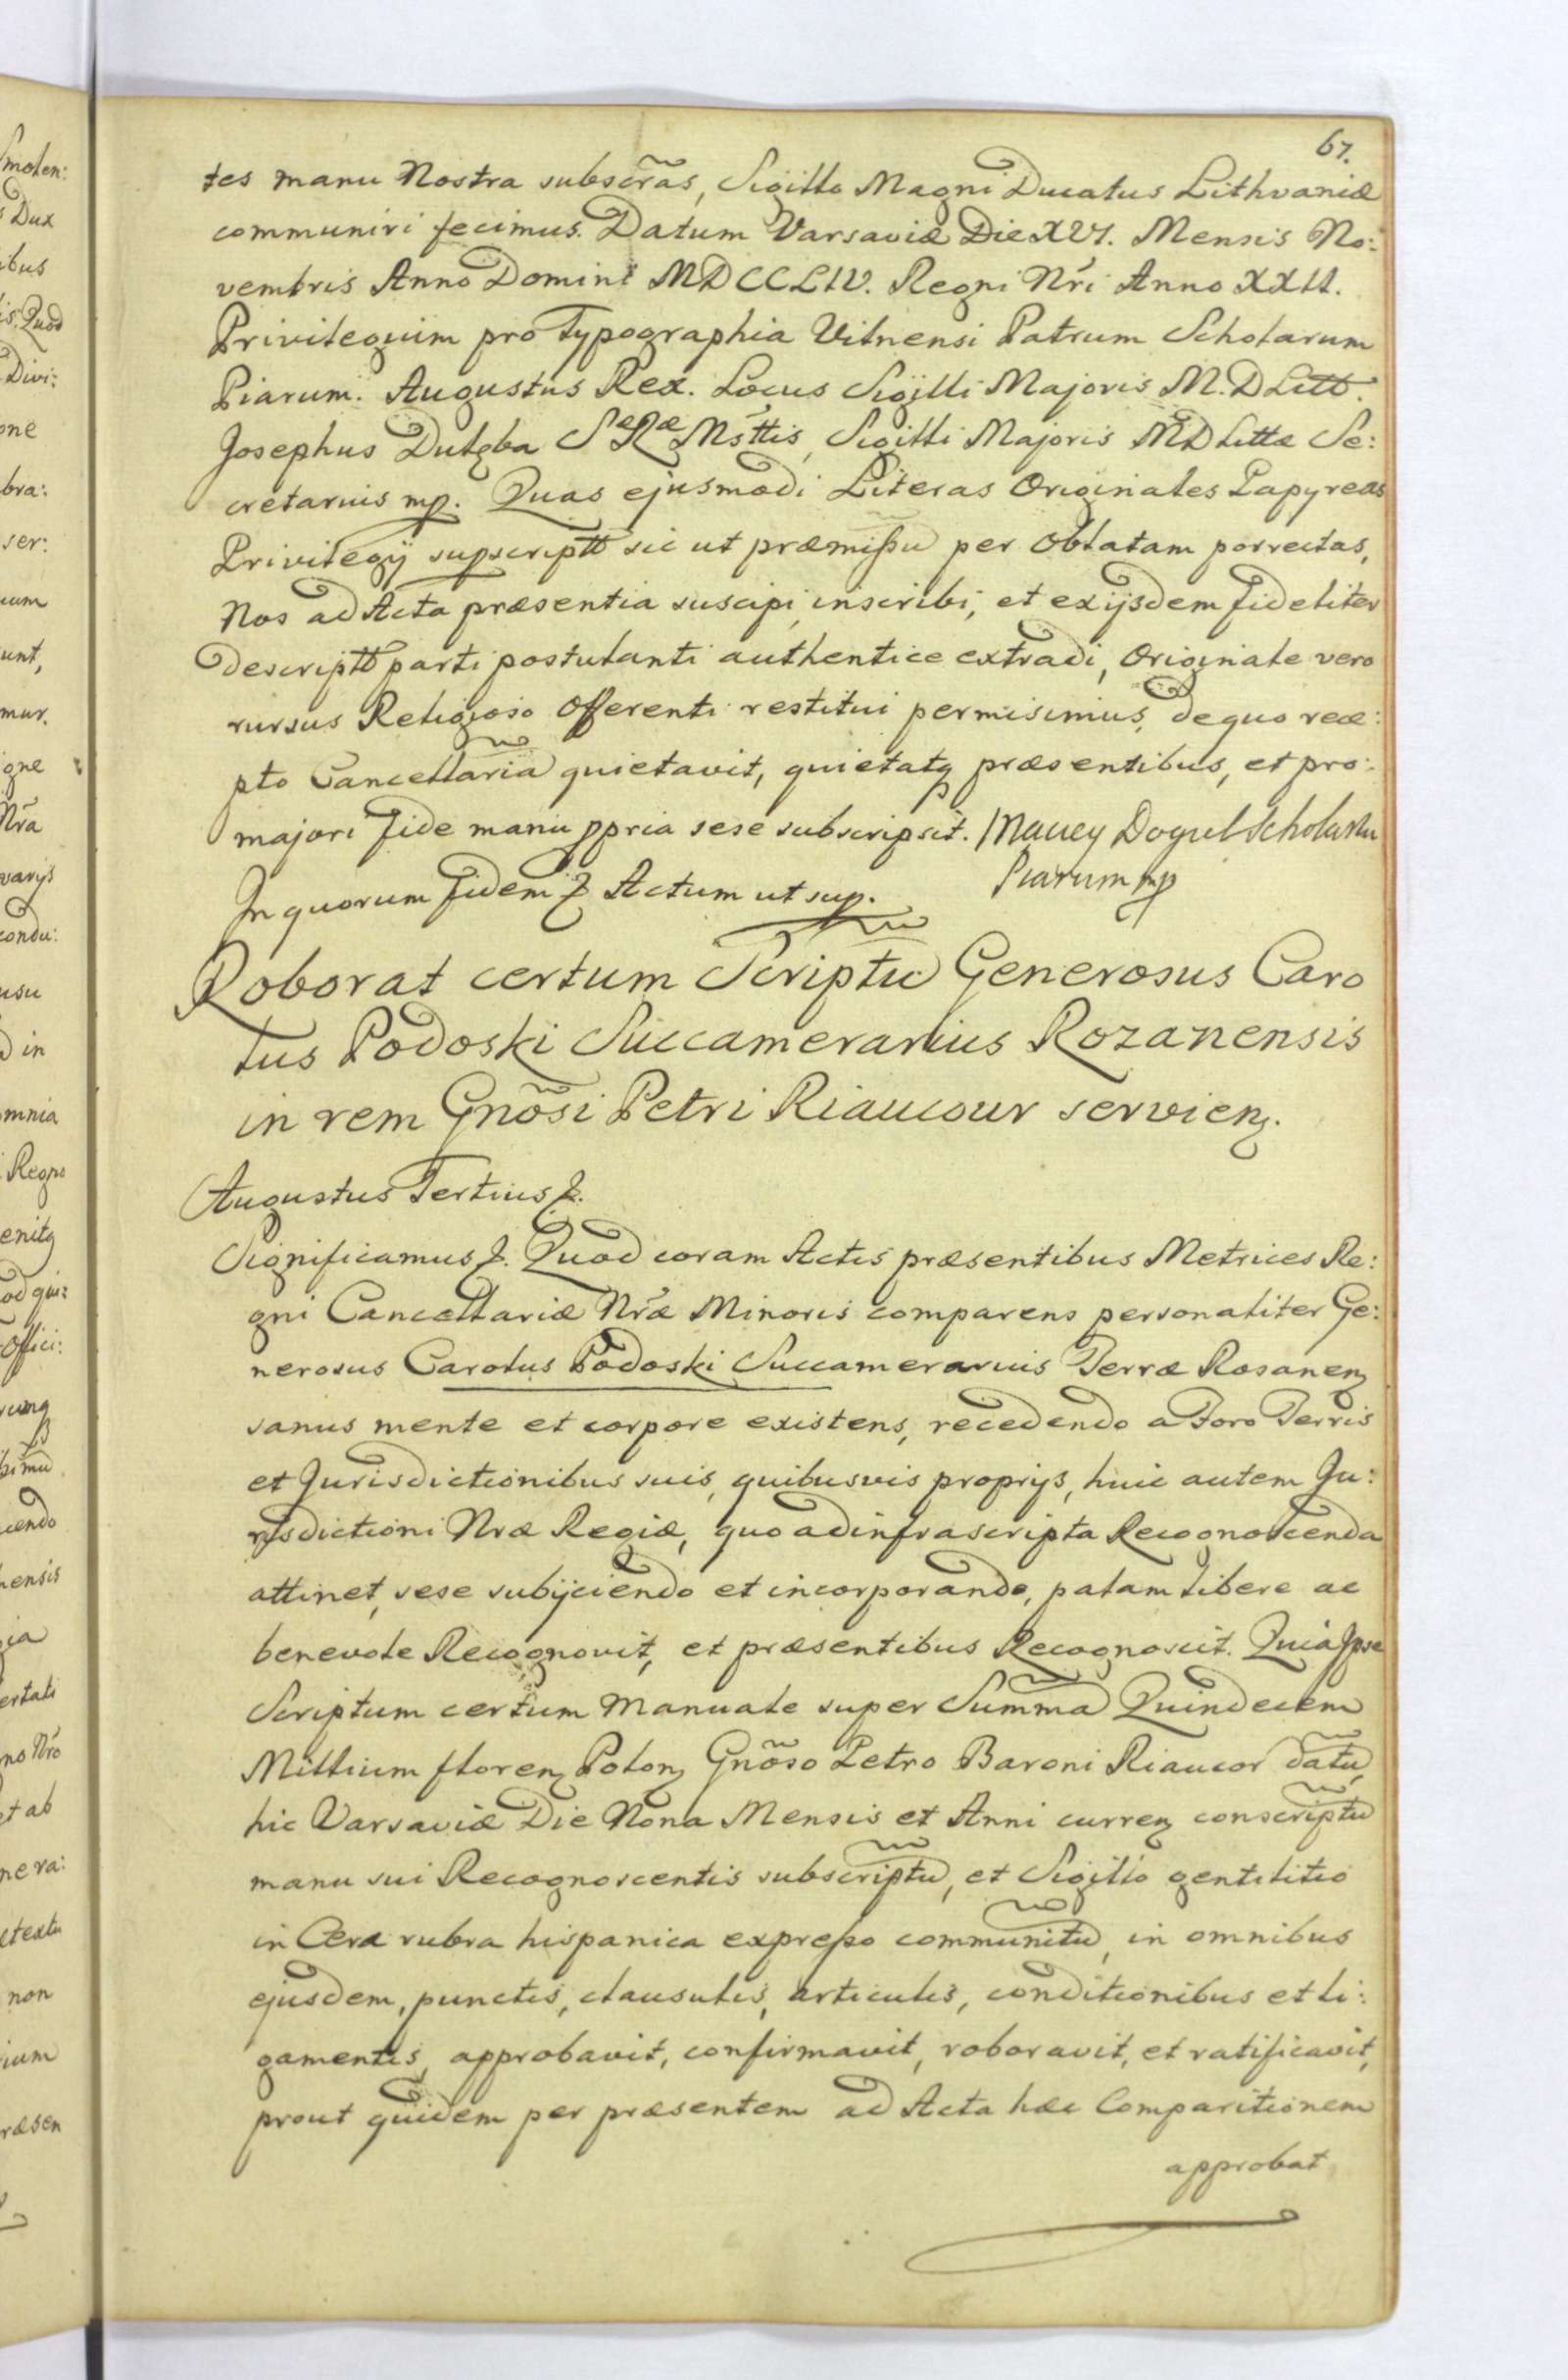 67.
tes manu Nostra subscr̃as, Sigillo Magni Ducatus Lithvaniæ
communiri fecimus. Datum Varsaviæ Die XVI. Mensis No:
vembris Anno Domini MDCCLIV. Regni Nr̃i Anno XXII.
Privilegium pro Typographia Vilnensi Patrum Scholarum
Piarum. Augustus Rex. Locus Sigilli Majoris M. D Litt.
Josephus Dulęba SæRæ Mṡttis, Sigilli Majoris MD Littæ Se:
cretarius mp. Quas ejusmodi Literas Originales Papyreas
Privilegij supscriptt sic ut præmissũ per Oblatam porrectas,
Nos ad Acta præsentia suscipi, inscribi, et exijsdem fideliter
descriptt parti postulanti authentice extradi, Originale vero
rursus Religioso Offerenti restitui permisimus, de quo rece:
pto Cancellariã quietavit, quietatq præsentibus, et pro
majori fide manu ppria sese subscripsit. Maciey Dogiel Scholaru
Piarum mp
In quorum fidem & Actum ut sup.
Roborat certum Scriptũ Generosus Caro
lus Podoski Succamerarius Rozanensis
in rem Gnõsi Petri Riaucour servieņ.
Augustus Tertius &.
Significamus &. Quod coram Actis præsentibus Metrices Re:
gni Cancellariæ Nr̃æ Minoris comparens personaliter Ge:
nerosus Carolus Podoski Succamerarius Terræ Rosaneņ
sanus mente et corpore existens, recedendo a Foro Terris
et Jurisdictionibus suis, quibusvis proprijs, huic autem Ju:
risdictioni Nræ Regiæ, quo ad infrascripta Recognoscenda
attinet, sese subijciendo et incorporando, palam libere ac
benevole Recognovit, et præsentibus Recognoscit. Quia Ipse
Scriptum certum Manuale super Summã Quindecem
Millium floreņ Poloņ Gnõso Petro Baroni Riaucor datũ,
hic Varsaviæ Die Nona Mensis et Anni curreņ conscriptũ
manu sui Recognoscentis subscriptũ, et Sigillo gentilitio
in Cera rubra hispanica expresso communitũ, in omnibus
ejusdem, punctis, clausulis, articulis, conditionibus et li:
gamentis, approbavit, confirmavit, roboravit, et ratificavit,
prout quidem per præsentem ad Acta hæc Comparitionem
approbat